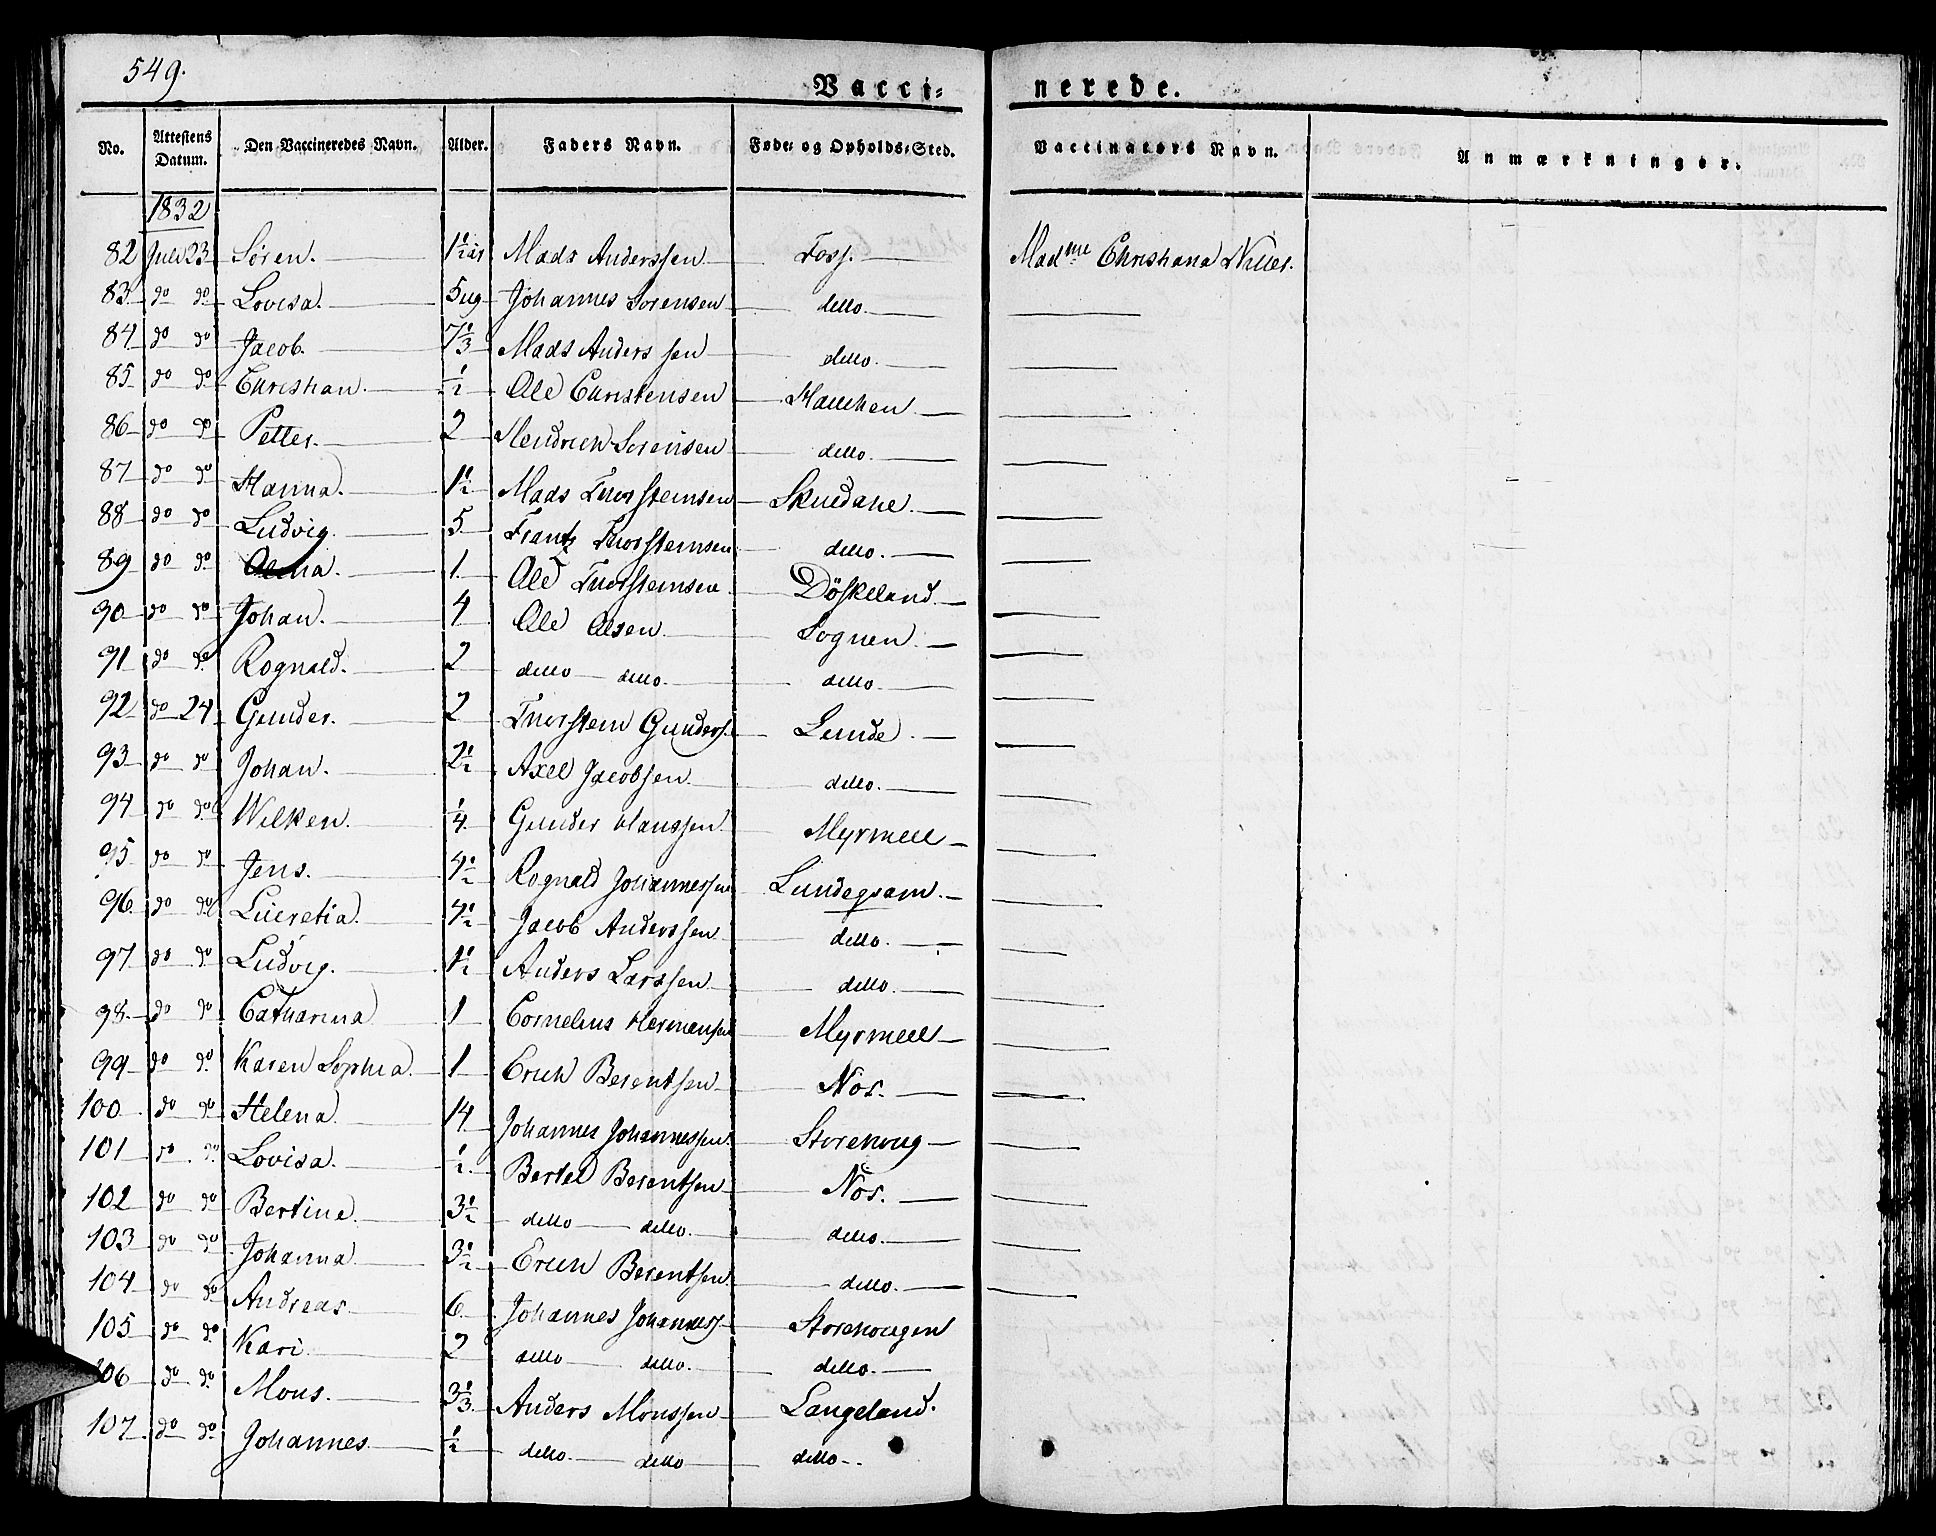 549.
Vacci= nerede.
No. Attestens Datum. Den Vaccineredes Navn. Alder. Faders Navn. Føde- og Opholds-Sted. Vaccinators Navn. Anmærkninger.
1832
82 Juli 23 Søren. 1 1/2 år Mads Anderssen Foss. Madme Christiana
83 do do Lovisa. 5 ug Johannes Sørensen detto.
84 do do Jacob. 7 1/3 Mads Anderssen detto.
85 do do Christian. 1/2 Ole Christensen
86 do do Petter. 2 Hendrich Sørensen detto.
87 do do Hanna. 1 1/2 Mads Thorsteinsen
88 do do Ludvig. 5 Frantz Thorsteinsen detto.
89 do do 1 Ole Thorsteinsen Döskeland.
90 do do Johan. 4 Ole Olsen Sognen.
91 do do Rognald. 2 detto detto. detto.
92 do 24 Gunder. 2 Thorstein Gunders. Lunde.
93 do do Johan. 2 1/2 Axel Jacobsen. detto.
94 do do Wilken. 1/4 Gunder Hanssen. Myrmell
95 do do Jens. 4 1/2 Rognald Johannessen Lundegsam.
96 do do Lucretia. 4 1/2 Jacob Anderssen detto.
97 do do Ludvig. 1 1/2 Anders Larssen detto.
98 do do Catharina 1 Cornelius Hermansen Myrmell
99 do do Karen Sophia 1 Erich Berentsen Nos.
100 do do Helena 14 Johannes Johannessen. Storehoug
101 do do Lovisa. 1/2 Bertel Berentsen Nos.
102 do do Bertine. 3 1/2 detto detto. detto.
103 do do Johanna 3 1/2 Erich Berentsen detto.
104 do do Andreas 6 Johannes Johanness. Storehougen
105 do do Kari 2 detto detto. detto.
106 do do Mons. 3 1/3 Anders Monssen Langeland.
107 do do Johannes 1/2 detto. detto detto.